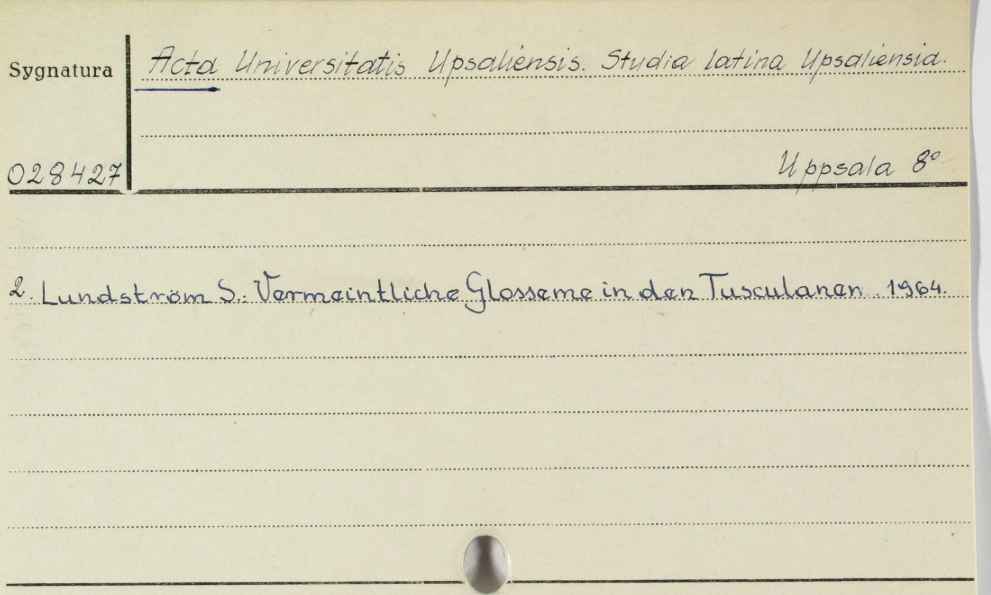 Sygnatura Acta Universitatis Upsaliensis. Studia latina Upsaliensia.
028427 Uppsala 8°
2. Lundström S.: Vermeintliche Glosseme in den Tusculanen. 1964.